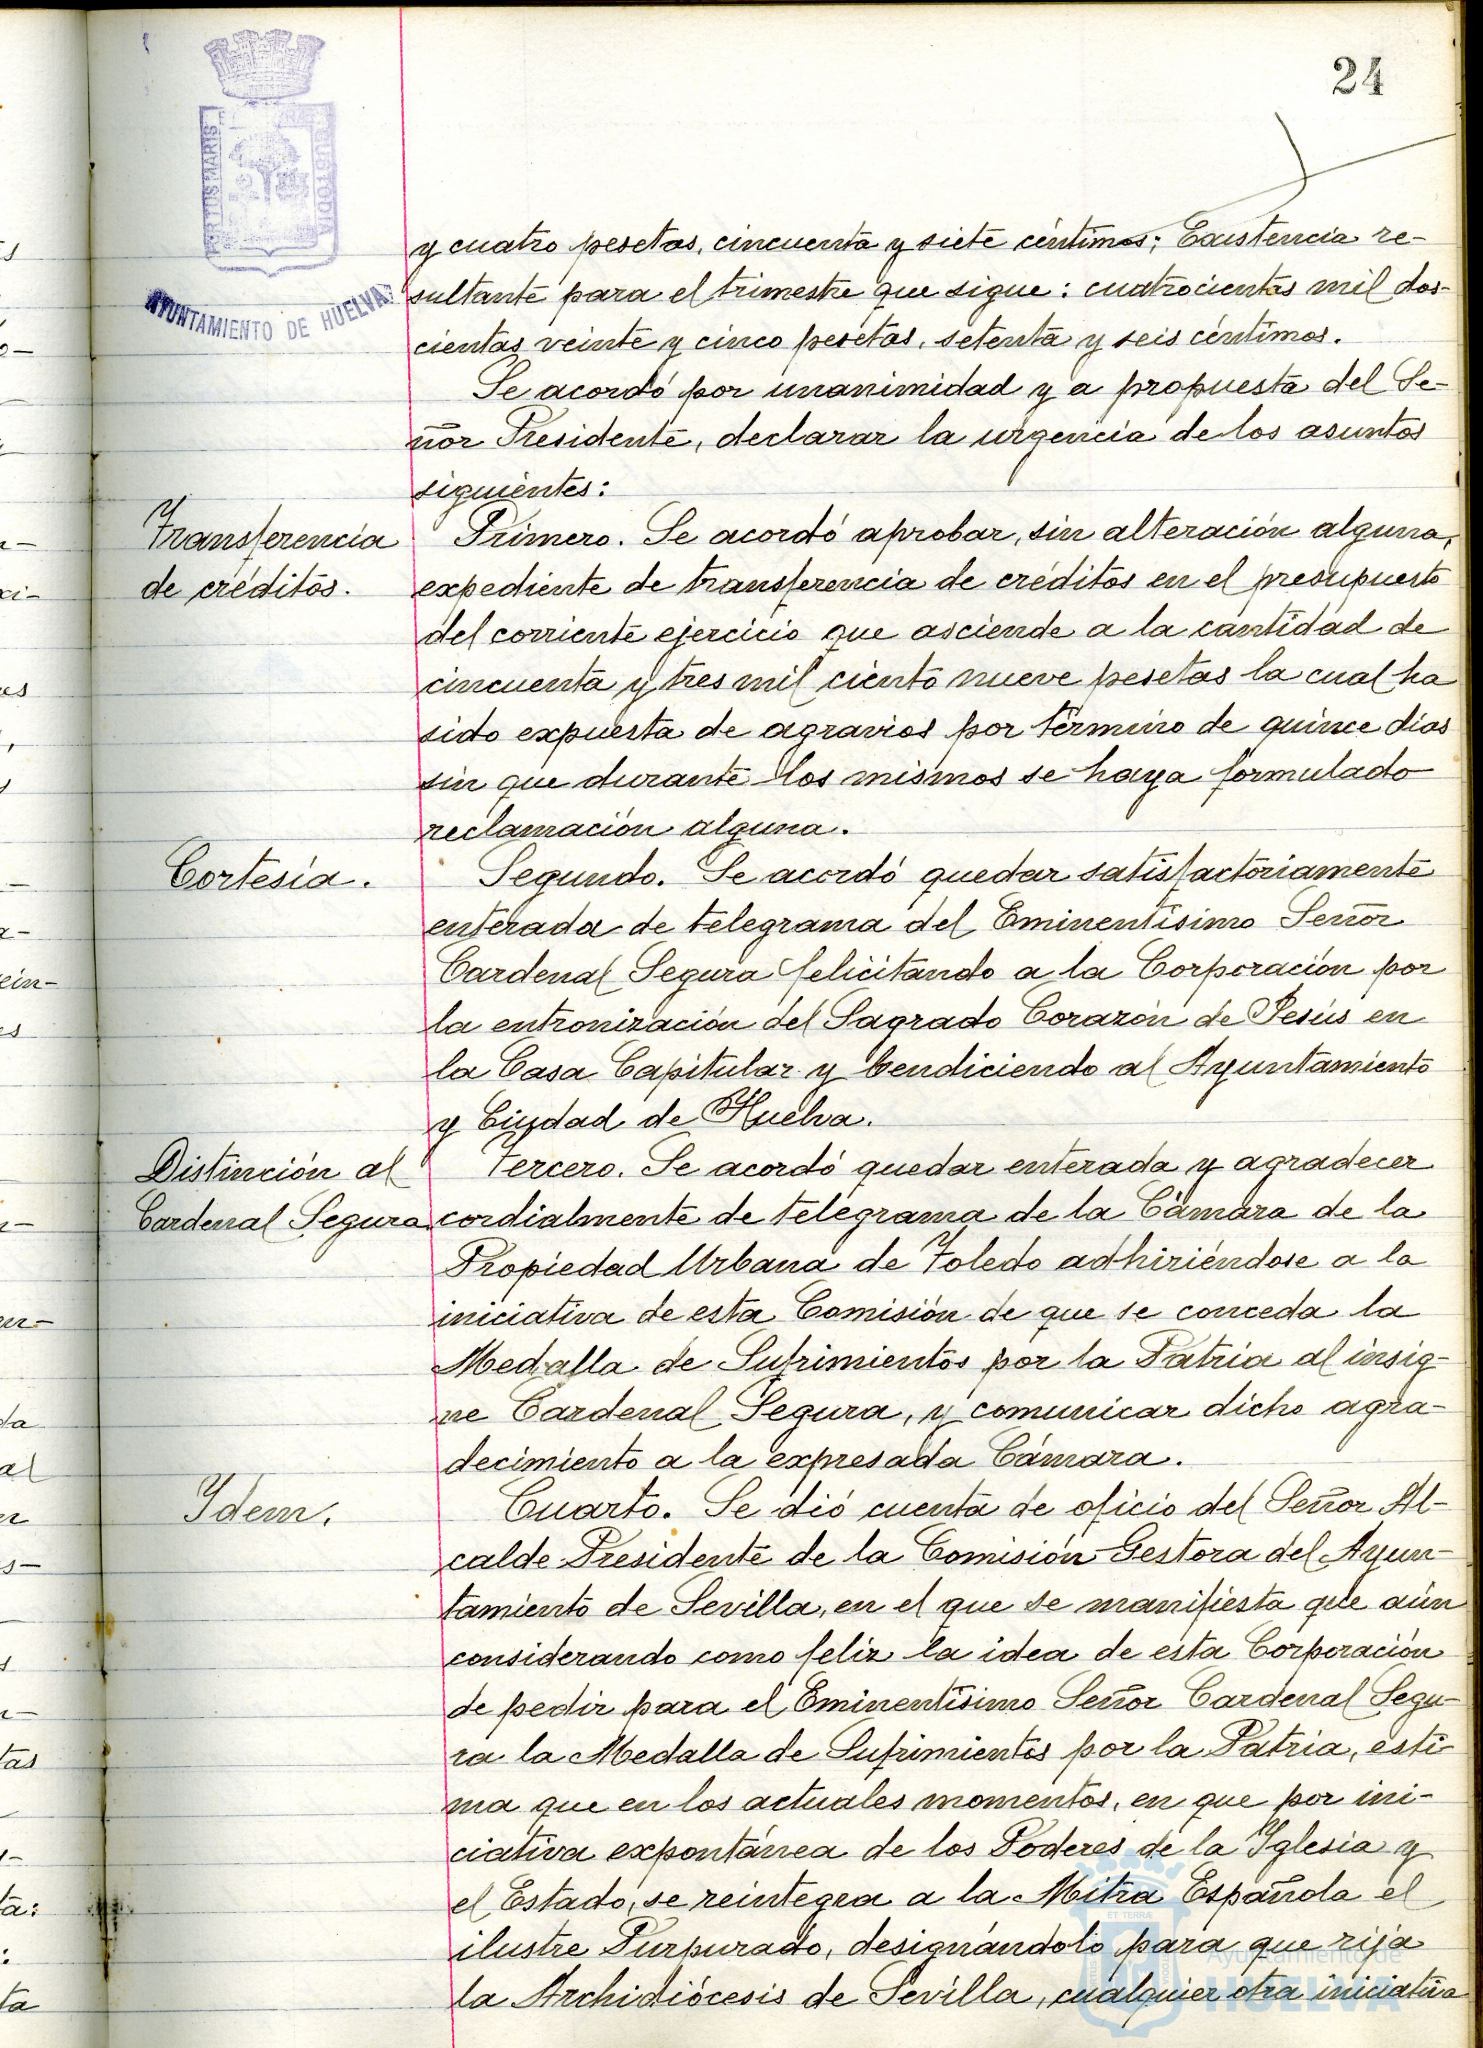 24
PORTUS MARIS
CUSTODIA
AYUNTAMIENTO DE HUELVA
y cuatro pesetas, cincuenta y siete céntimos; Existencia re-
sultante para el trimestre que sigue: cuatrocientas mil dos-
cientas veinte y cinco pesetas, setenta y seis céntimos.
Se acordó por unanimidad y a propuesta del Se-
ñor Presidente, declarar la urgencia de los asuntos
siguientes:
Transferencia
de créditos.
Primero. Se acordó aprobar, sin alteración alguna,
expediente de transferencia de créditos en el presupuesto
del corriente ejercicio que asciende a la cantidad de
cincuenta y tres mil ciento nueve pesetas la cual ha
sido expuesta de agravios por término de quince días
sin que durante los mismos se haya formulado
reclamación alguna.
Cortesía.
Segundo. Se acordó quedar satisfactoriamente
enterada de telegrama del Eminentísimo Señor
Cardenal Segura felicitando a la Corporación por
la entronización del Sagrado Corazón de Jesús en
la Casa Capitular y bendiciendo al Ayuntamiento
y Ciudad de Huelva.
Distinción al
Cardenal Segura
Tercero. Se acordó quedar enterada y agradecer
cordialmente de telegrama de la Cámara de la
Propiedad Urbana de Toledo adhiriéndose a la
iniciativa de esta Comisión de que se conceda la
Medalla de Sufrimientos por la Patria al insig-
ne Cardenal Segura, y comunicar dicho agra-
decimiento a la expresada Cámara.
Idem.
Cuarto. Se dió cuenta de oficio del Señor Al-
calde Presidente de la Comisión Gestora del Ayun-
tamiento de Sevilla, en el que se manifiesta que aún
considerando como feliz la idea de esta Corporación
de pedir para el Eminentísimo Señor Cardenal Segu-
ra la Medalla de Sufrimientos por la Patria, esti-
ma que en los actuales momentos, en que por ini-
ciativa expontánea de los Poderes de la Iglesia y
el Estado, se reintegra a la Mitra Española el
ilustre Purpurado, designándolo para que rija
la Archidiócesis de Sevilla, cualquier otra iniciativa
Ayuntamiento de
HUELVA